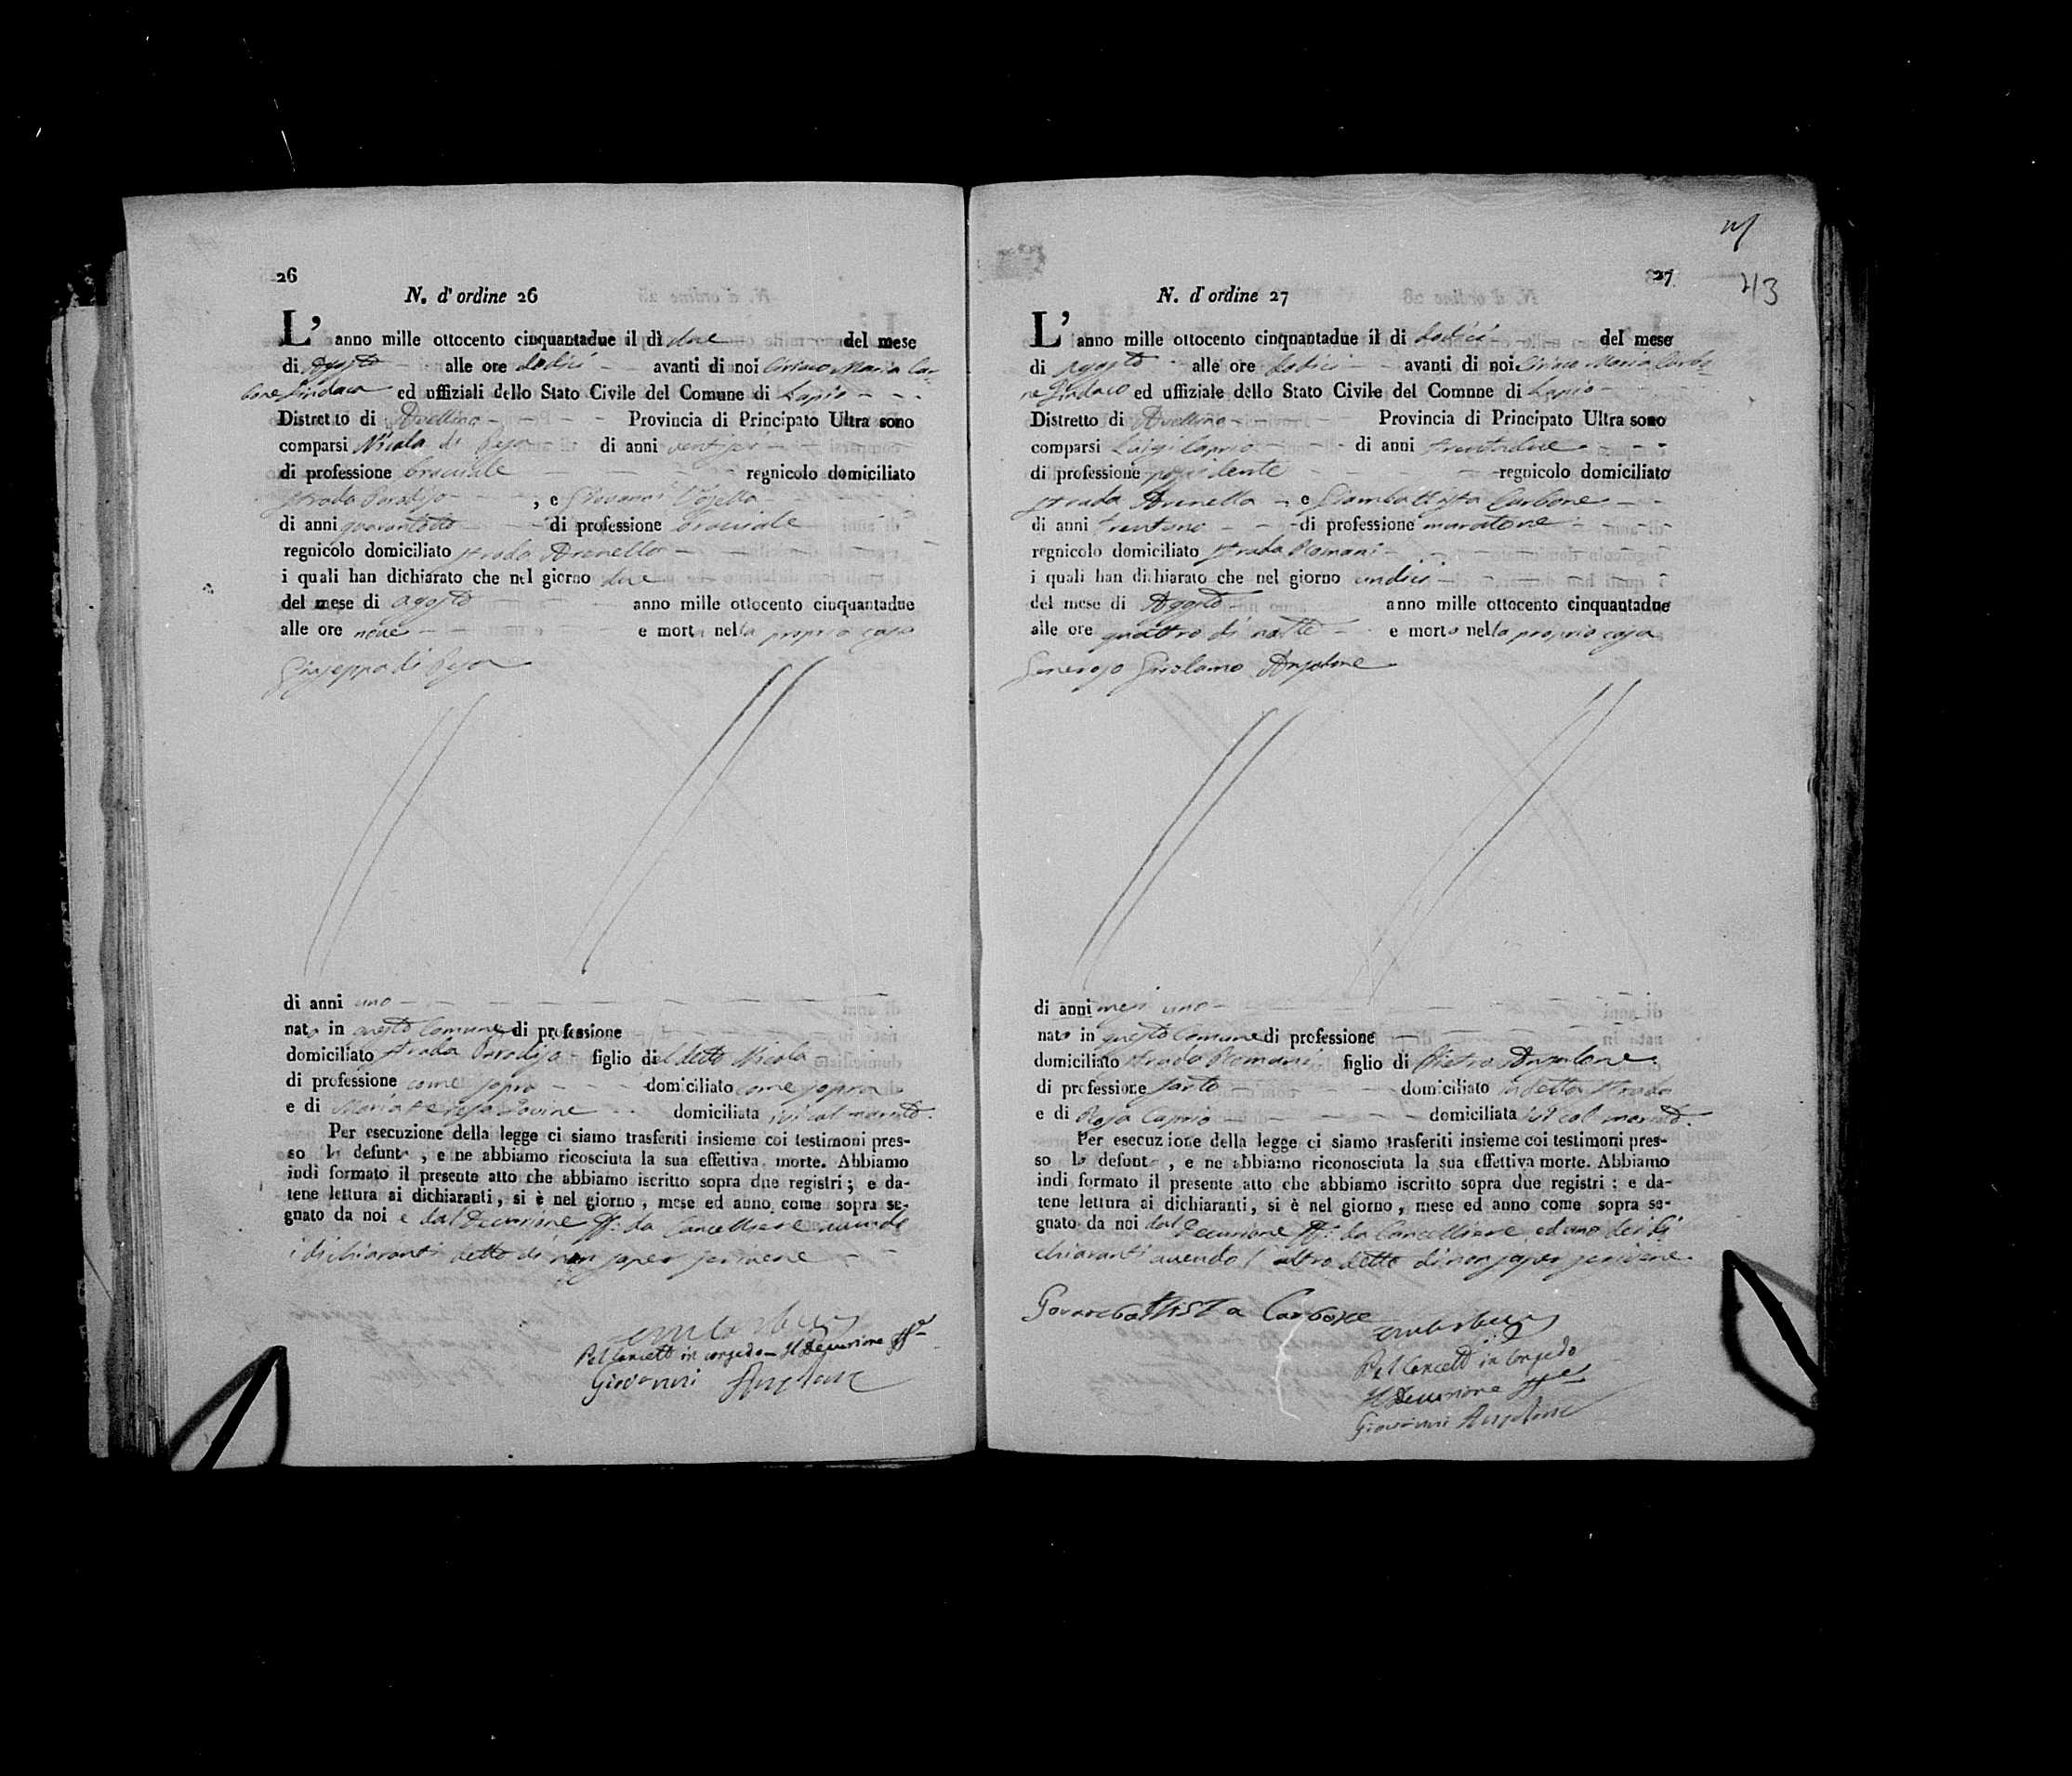 26
N. d'ordine 26
L'anno mille ottocento cinquantadue il dì due del mese
di Agosto alle ore dodici avanti di noi Ciriaco Maria Car-
bone Sindaco ed uffiziali dello Stato Civile del Comune di Lapio
Distretto di Avellino Provincia di Principato Ultra sono
comparsi Nicola di di anni
di professione bracciale regnicolo domiciliato
strada Paradiso , e Giovanni
di anni quarantotto di professione bracciale
regnicolo domiciliato strada Arenella
i quali han dichiarato che nel giorno due
del mese di agosto anno mille ottocento cinquantadue
alle ore nove e morta nella propria casa
Giuseppa di
di anni uno
nata in questo Comune di professione
domiciliato strada Paradiso figlio di detto Nicola
di professione come sopra domiciliato come sopra
e di Maria Teresa Iovine domiciliata ivi col marito.
Per esecuzione della legge ci siamo trasferiti insieme coi testimoni pres-
so l defunt , e ne abbiamo ricosciuta la sua effettiva morte. Abbiamo
indi formato il presente atto che abbiamo iscritto sopra due registri; e da-
tene lettura ai dichiaranti, si è nel giorno, mese ed anno come sopra se-
gnato da noi e dal Decurione ff: da Cancelliere avendo
i dichiaranti detto di non saper scrivere
Pel Cancell in congedo - Il Decurione ff
Giovanni Anzalone
27
43
N. d'ordine 27
L'anno mille ottocento cinquantadue il di dodici del mese
di Agosto alle ore dodici avanti di noi Ciriaco Maria Carbo
ne Sindaco ed uffiziale dello Stato Civile del Comnne di Lapio
Distretto di Avellino Provincia di Principato Ultra sono
comparsi Luigi Caprio di anni trentadue
di professione possidente regnicolo domiciliato
strada Arenella e Giambattista Carbone
di anni trentuno di professione muratore
regnicolo domiciliato strada Romani
i quali han dichiarato che nel giorno undici
del mese di Agosto anno mille ottocento cinquantadue
alle ore quattro di notte e morto nella propria casa
Generoso Girolamo Anzalone
di anni mesi uno
nato in questo Comune di professione
domiciliato strada Romani figlio di Pietro Anzalone
di professione sarto domiciliato in detta strada
e di Rosa Caprio domiciliata ivi col marito.
Per esecuzione della legge ci siamo trasferiti insieme coi testimoni pres-
so l defunt , e ne abbiamo riconosciuta la sua effettiva morte. Abbiamo
indi formato il presente atto che abbiamo iscritto sopra due registri : e da-
tene lettura ai dichiaranti, si è nel giorno, mese ed anno come sopra se-
gnato da noi dal Decurione ff: da Cancelliere ed uno dei di
chiaranti avendo l'altro detto di non saper scrivere.
Carbone
Pel Cancell in Congedo
Il Decurione ff
Giovanni Anzalone